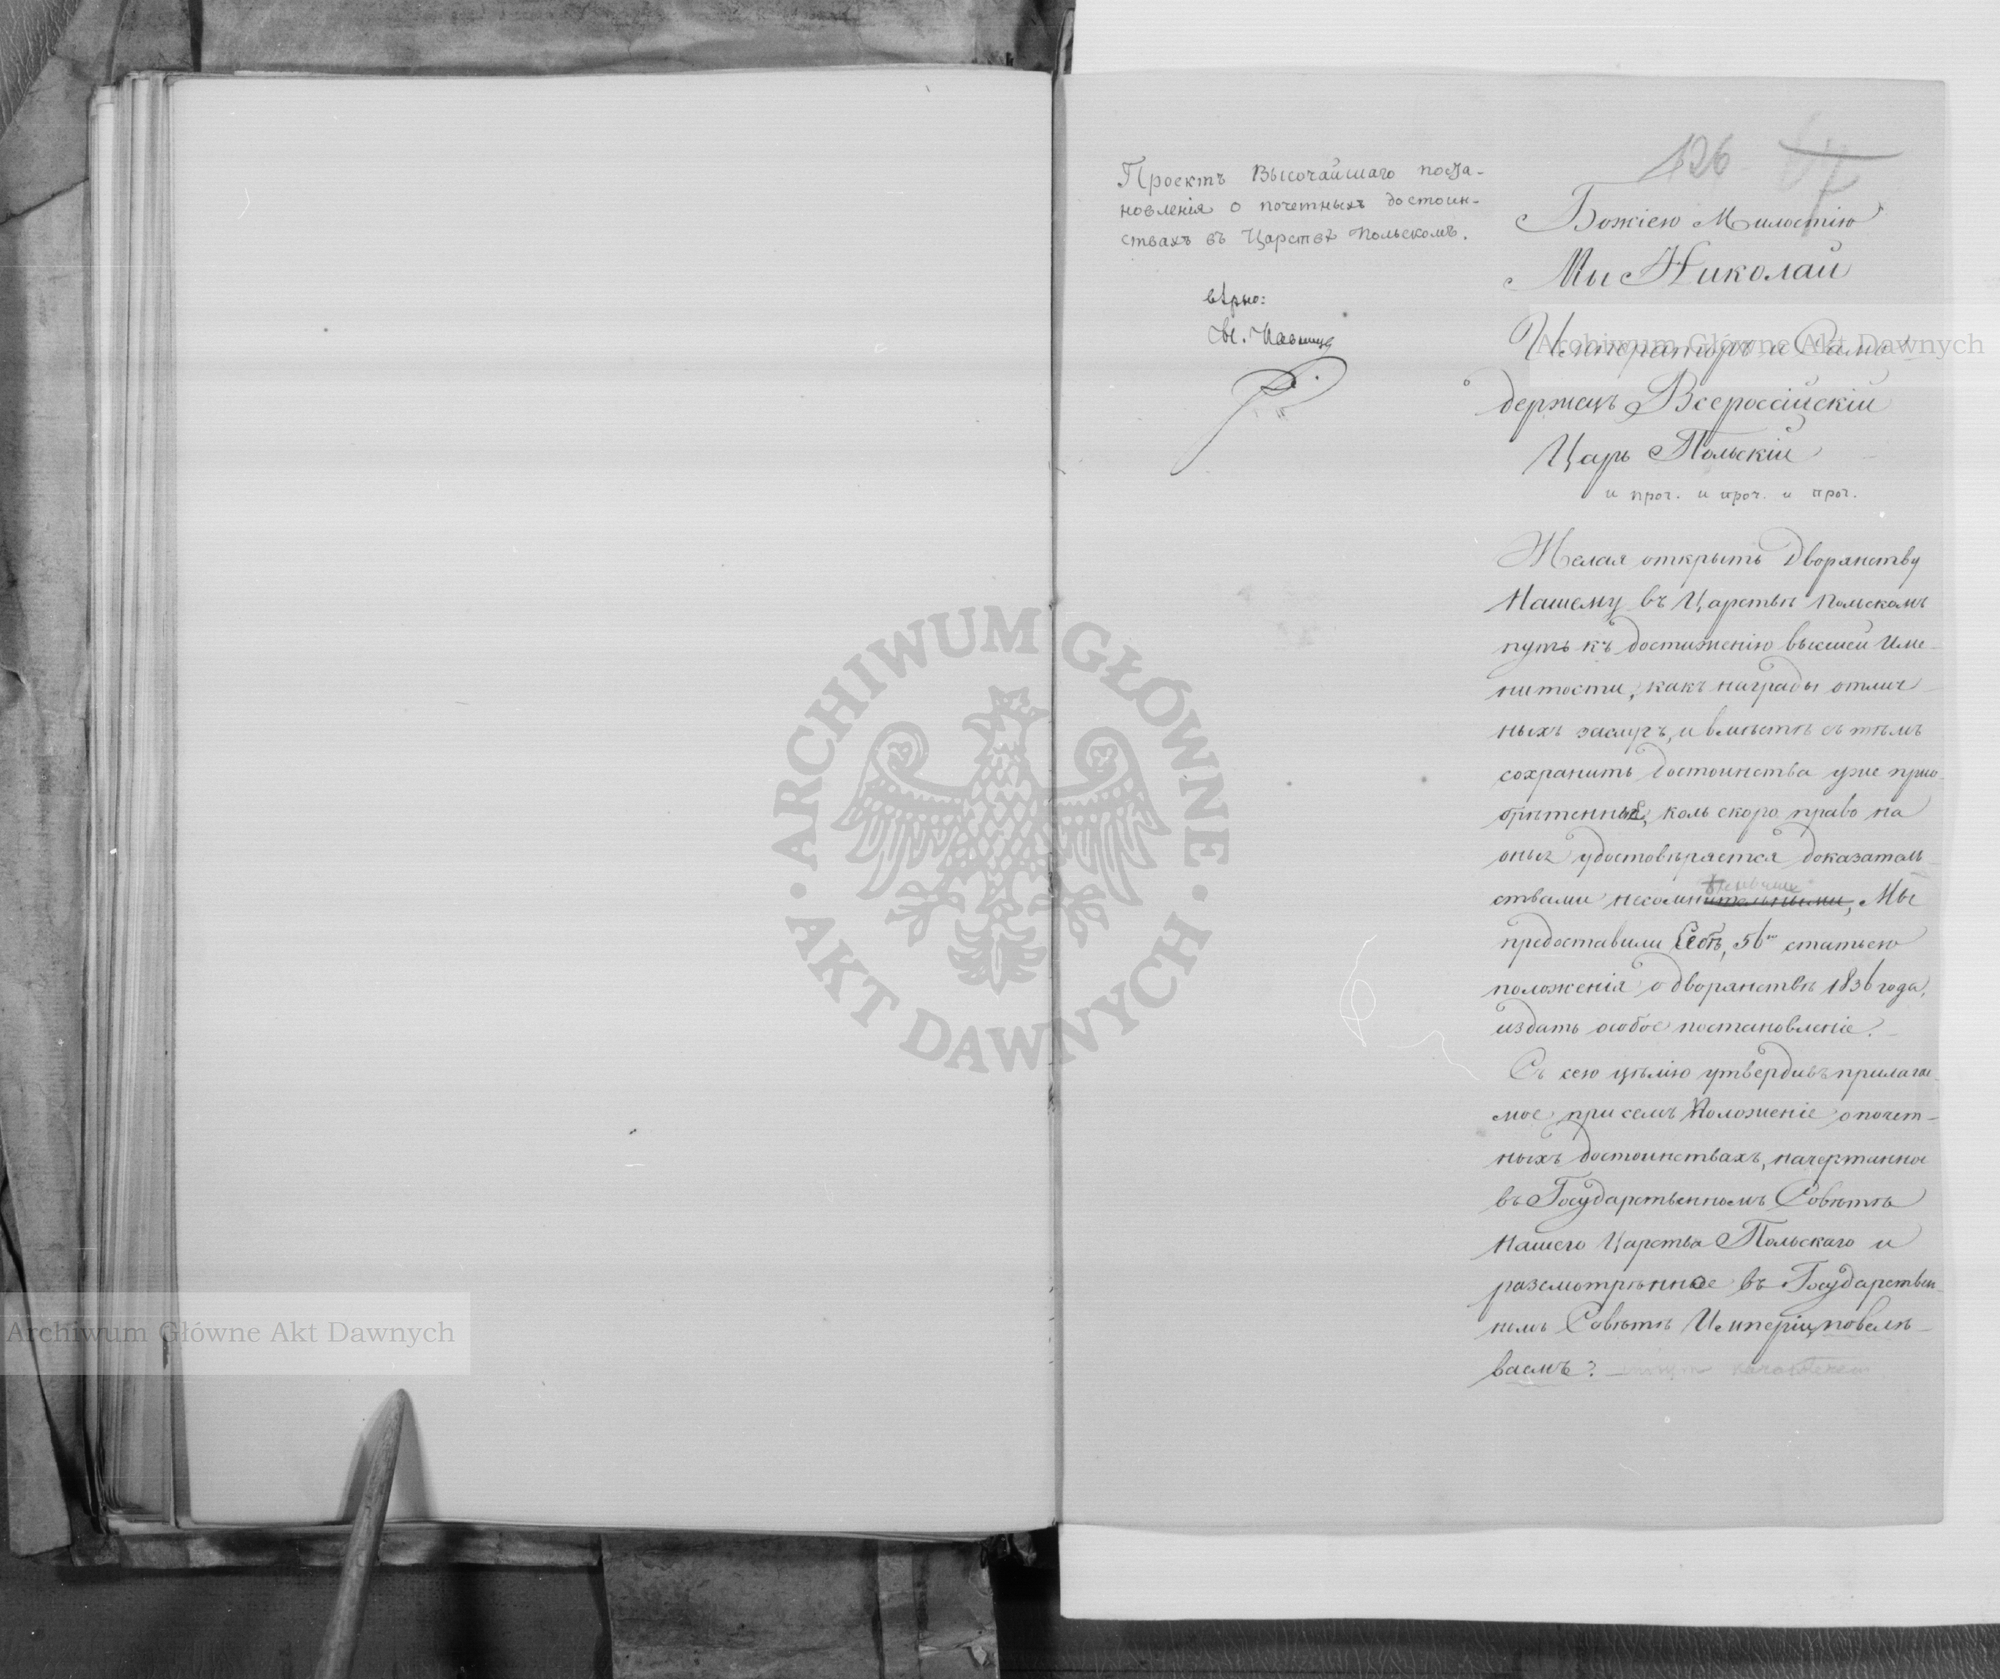 126
67
Проектъ Высочайшаго поста-
новленія о почетныхъ достоин-
ствахъ въ Царствѣ Польскомъ.
вѣрно:
Божіею Милостію
Мы Николай
Императоръ и Само-
держецъ Всероссійскій
Царь Польскій
и проч. и проч. и проч.
Желая открыть Дворянству
Нашему въ Царствѣ Польскомъ
путь къ достиженію высшей Име-
нитости, какъ награды отлич-
ныхъ заслугъ, и вмѣстѣ съ тѣмъ
сохранить достоинства уже прио-
брѣтенныя, коль скоро право на
оныя удостовѣряется доказатель-
ствами несомнительными, Мы
предоставили Себѣ, 56ю статьею
положенія о дворянствѣ 1836 года,
издать особое постановленіе.
Съ сею цѣлію утвердивъ прилагае-
мое при семъ Положеніе о почет-
ныхъ достоинствахъ, начертанное
въ Государственномъ Совѣтѣ
Нашего Царства Польскаго и
разсмотрѣнное въ Государствен-
номъ Совѣтѣ Имперіи, повелѣ-
ваемъ:
Archiwum Główne Akt Dawnych
Archiwum Główne Akt Dawnych
ARCHIWUM GŁÓWNE
AKT DAWNYCH